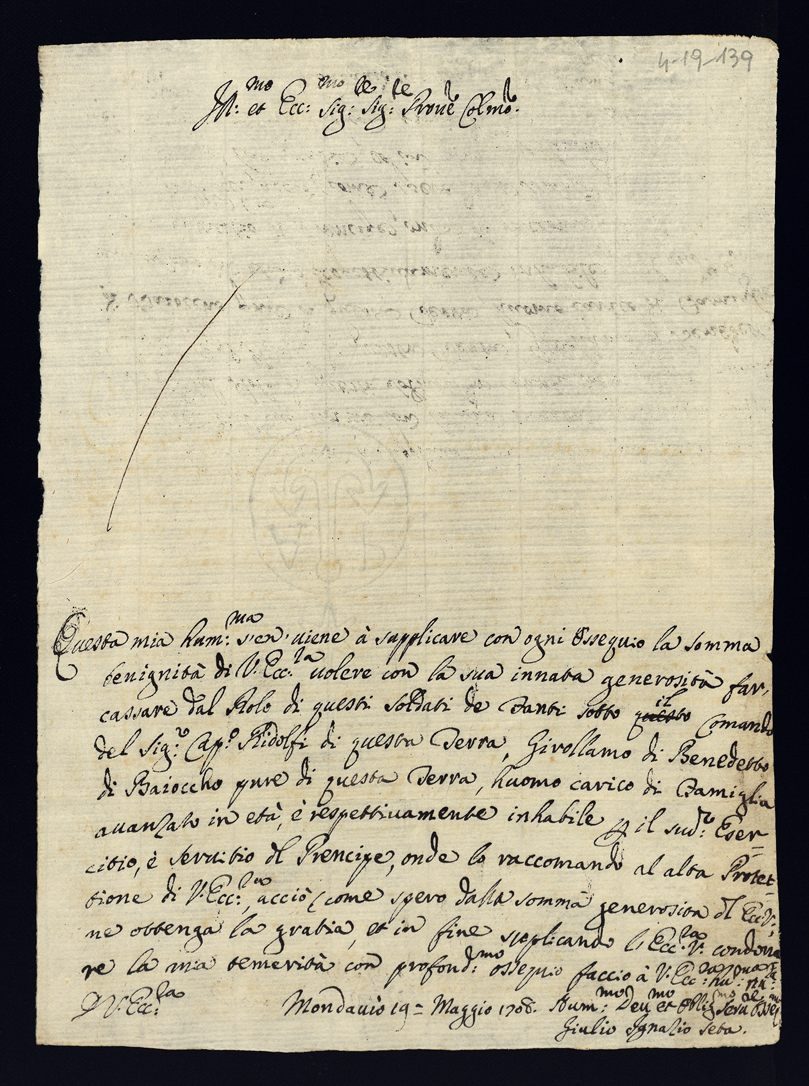 4-19-139
Ill:mo et Ecc:mo Sig:re Sig:re Prone Colmo:
Questa mia hum:ma s'en' uiene à supplicare con ogni ossequio la somma
benignità di V: Ecc:za uolere con la sua innata generosità far,
cassare dal Rolo di questi soldati de Fanti sotto il Comando
del Sig:r Cap:o Ridolfi di questa Terra, Girollamo di Benedetto
di Baioccho pure di questa Terra, huomo carico di Famiglia
auanzato in età, è respettiuamente inhabile il sud:o Eser-
citio, è seruitio del Prencipe, onde lo raccomando al alta Protet-
tione di V: Ecc:za, acciò (come spero dalla somma generosita del Ecc: V:
ne ottenga la gratia, et in fine supplicando l'Ecc:za V: condona
re la mia temerità con profond:mo ossequio faccio à V: Ecc:za
D V: Ecc:za
Mondauio 19 = Maggio 1708. Hum:mo Deu:mo et
Giulio Ignatio Seta.